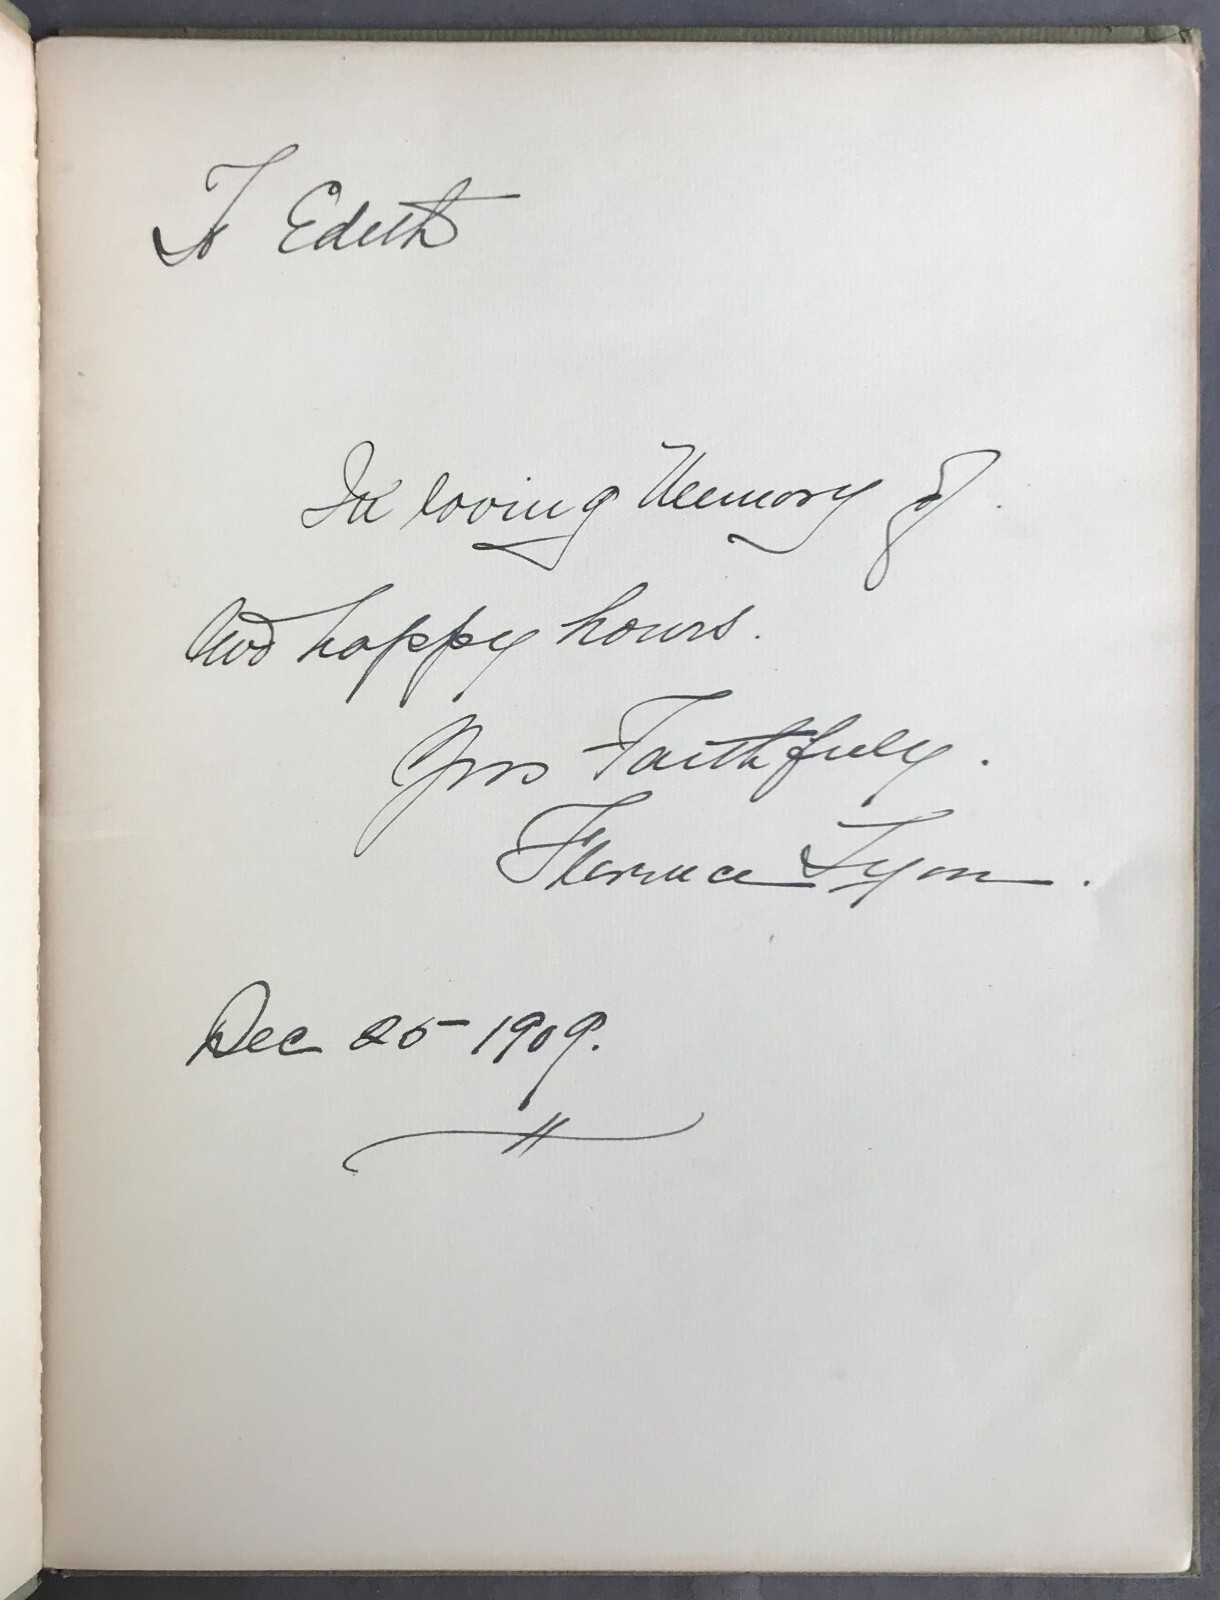 To Edith
In loving Memory of.
and happy hours.
Yrs Faithfuly.
Florence Lyon.
Dec 25-1909.